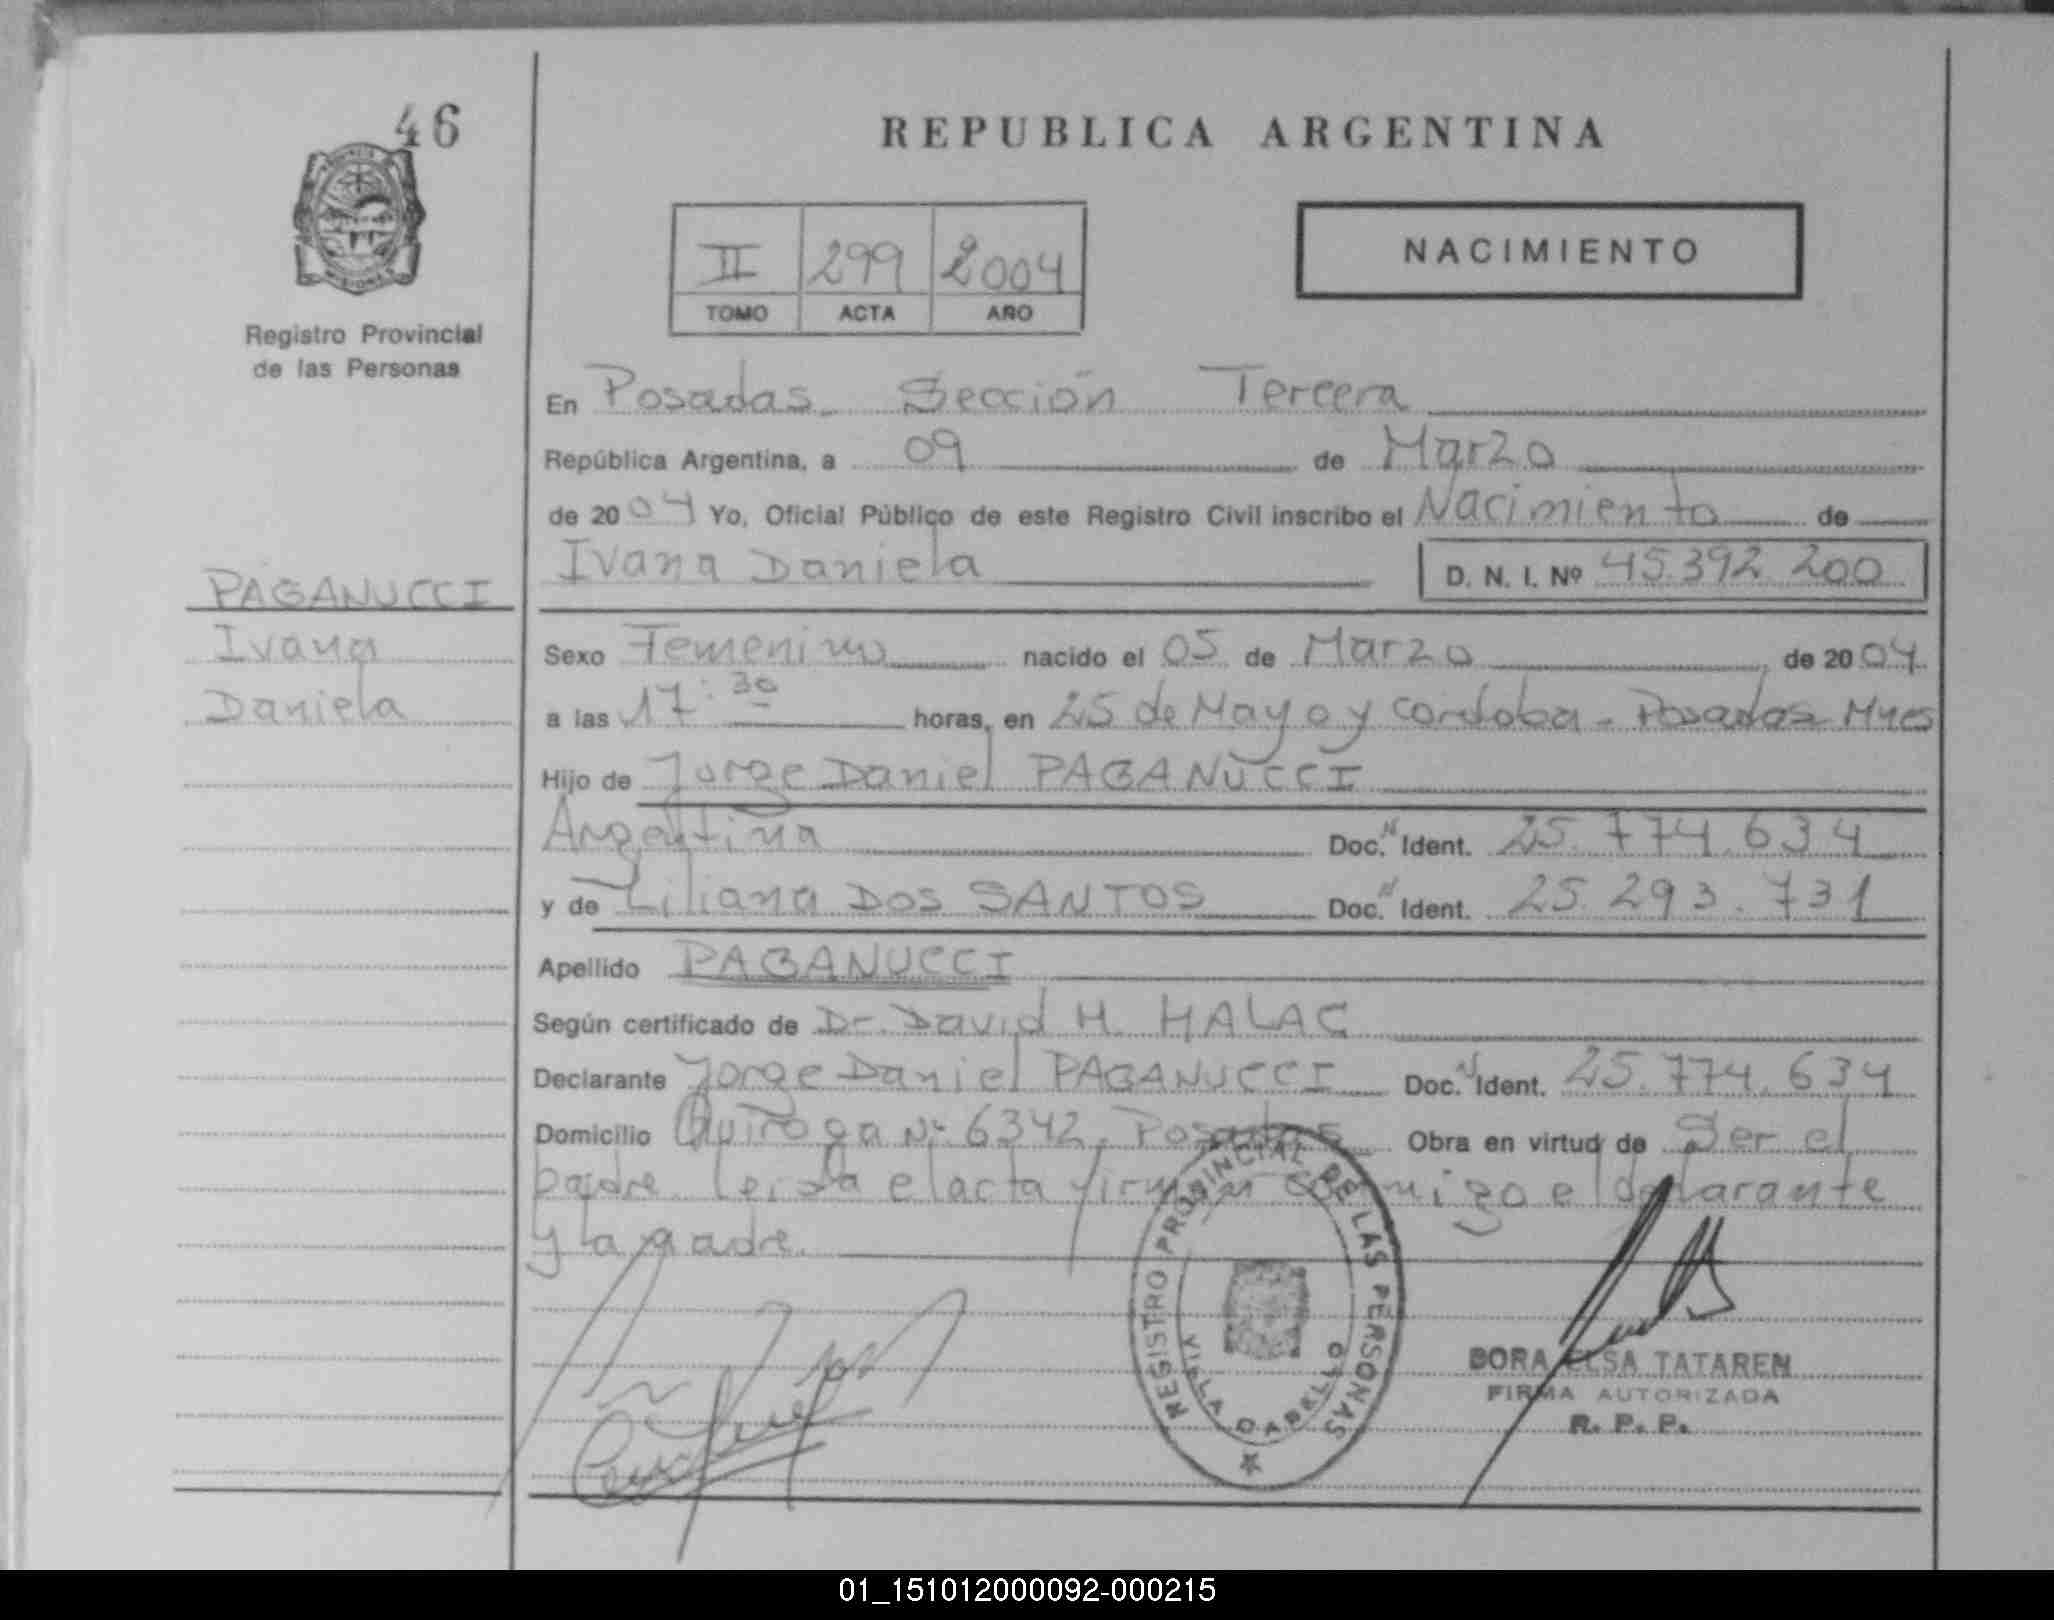 46
REPUBLICA ARGENTINA
II 299 2004
TOMO ACTA AÑO
NACIMIENTO
Registro Provincial
de las Personas
En Posadas. Sección Tercera
República Argentina, a 09 de Marzo
de 2004 Yo, Oficial Público de este Registro Civil inscribo el Nacimiento de
Ivana Daniela D. N. I. Nº 45.392.200
PAGANUCCI
Ivana
Daniela
Sexo Femenino nacido el 05 de Marzo de 2004
a las 17:30 horas, en 25 de Mayo y Cordoba - Posadas Mnes
Hijo de Jorge Daniel PAGANUCCI
Argentina Doc. N Ident. 25.774.634
y de Liliana DOS SANTOS Doc. N Ident. 25.293.731
Apellido PAGANUCCI
Según certificado de Dr. David H. HALAC
Declarante Jorge Daniel PAGANUCCI Doc. N Ident. 25.774.634
Domicilio Quiroga Nº 6342, Posadas Obra en virtud de Ser el
padre. leida el acta firman conmigo el declarante
y la madre.
REGISTRO PROVINCIAL DE LAS PERSONAS
VILLA CABELLO
DORA ELSA TATAREN
FIRMA AUTORIZADA
R. P. P.
01_151012000092-000215